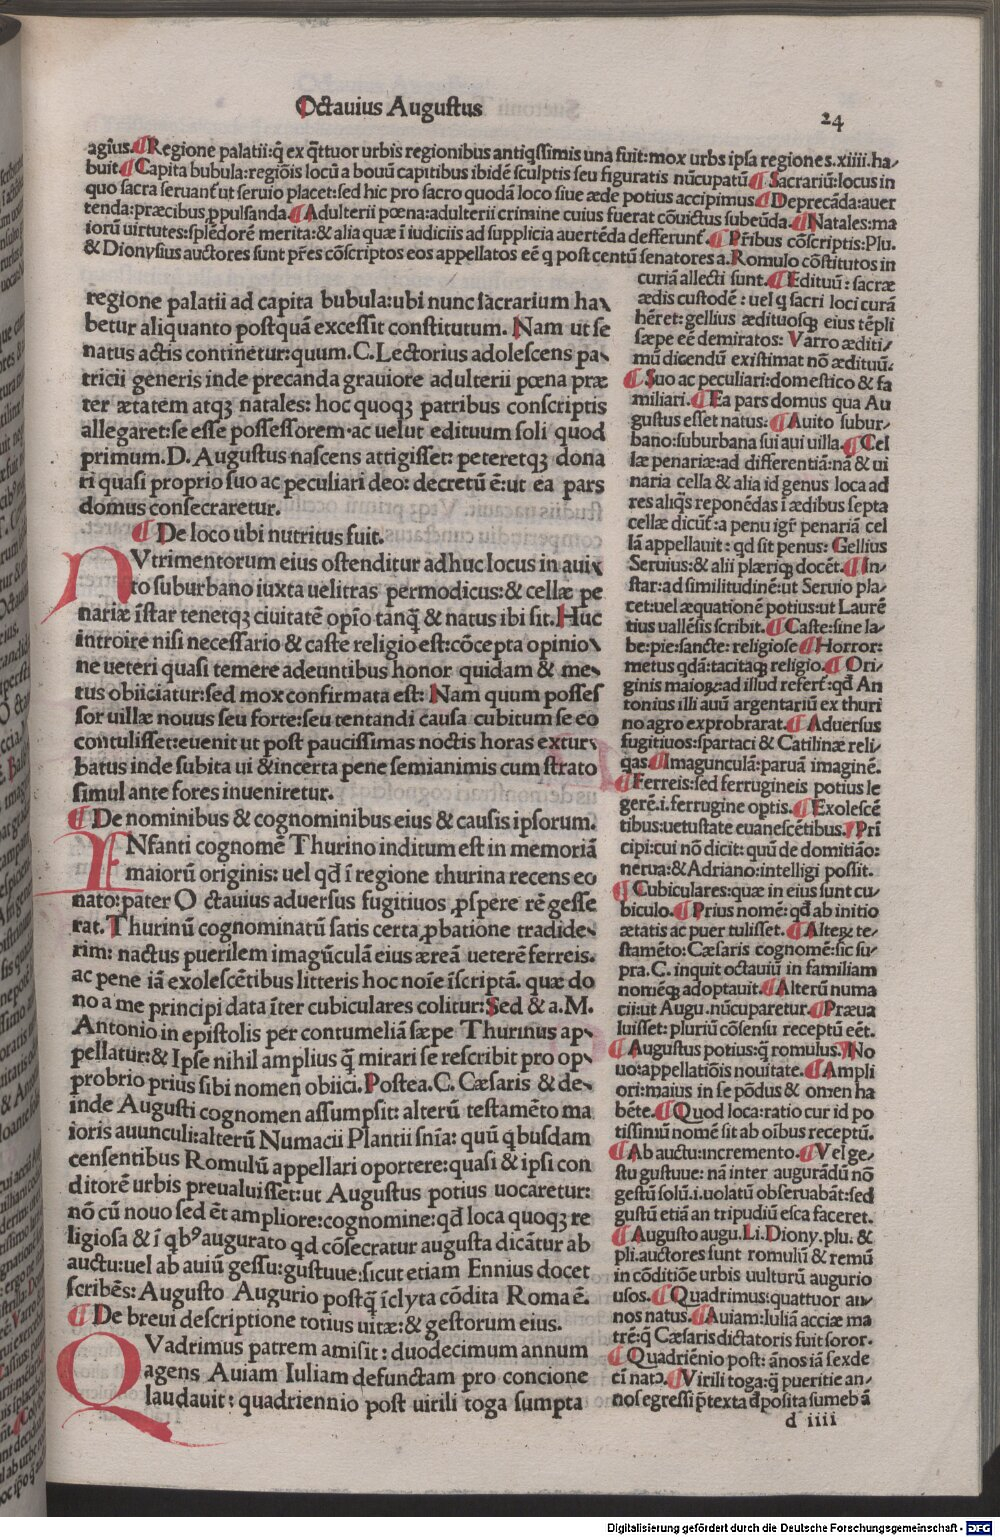 Octauius Augustus
24
agíus. ¶ Regione palatii: q̃ ex q̃ttuor urbis regionibus antiqssimis una fuit: mox urbs ipsa regiones.xiiii.ha/
buit ¶ Capita bubula: regiōis locū a bouū capitibus ibidē sculptis seu figuratis nūcupatū ¶ Sacrariū: locus in
quo sacra seruant̃ ut seruio placet: sed hic pro sacro quodā loco siue æde potius accipimus ¶ Deprecāda: auer
tenda: præcibus ꝓpulsanda. ¶ Adulterii pœna: adulterii crimine cuius fuerat cōuictus subeūda. ¶ Natales: ma
iorū uirtutes: splēdorē merita: & alia quæ ī iudiciis ad supplicia auertēda defferunt̃. ¶ Pr̃ibus cōscriptis: Plu.
& Dionysius auctores sunt pr̃es cōscriptos eos appellatos eē q post centū senatores a. Romulo cōstitutos in
curiā allecti sunt. ¶ Edituū: sacræ
ædis custodē: uel q sacri loci curā
hēret: gellius ædituosqꝫ eius tēpli
sæpe eē demiratos: Varro æditi/
mū dicendū existimat nō ædituū.
¶ Suo ac peculiari: domestico & fa
miliari. ¶ Ea pars domus qua Au
gustus esset natus: ¶ Auito subur/
bano: suburbana sui aui uilla. ¶ Cel
læ penariæ: ad differentiā: nā & ui
naria cella & alia id genus loca ad
res aliq̃s reponēdas ī ædibus septa
cellæ dicūt̃: a penu igr̃ penariā cel
lā appellauit: qd sit penus: Gellius
Seruius: & alii plæriqꝫ docēt. ¶ In/
star: ad similitudinē: ut Seruio pla/
cet: uel æquationē potius: ut Laurē
tius uallēsis scribit. ¶ Caste: sine la/
be: pie: sancte: religiose ¶ Horror:
metus qdā: tacitaqꝫ religio. ¶ Ori/
ginis maioꝝ: ad illud refert̃: qđ An
tonius illi auū argentariū ex thuri
no agro exprobrarat. ¶ Aduersus
fugitiuos: spartaci & Catilinæ reli/
qas. ¶ Imagunculā: paruā imaginē.
¶ Ferreis: sed ferrugineis potius le
gerē.i.ferrugine optis. ¶ Exolescē
tibus: uetustate euanescētibus. ¶ Pri
cipi: cui nō dicit: quū de domitiāo:
nerua: & Adriano: intelligi possit.
¶ Cubiculares: quæ in eius sunt cu/
biculo. ¶ Prius nomē: qđ ab initio
ætatis ac puer tulisset. ¶ Alteꝝ te/
stamēto: Cæsaris cognomē: sic su/
pra. C. inquit octauiū in familiam
nomēqꝫ adoptauit. ¶ Alterū numa
cii: ut Augu. nūcuparetur. ¶ Præua
luisset: pluriū cōsensu receptū eēt.
¶ Augustus potius: q̃ romulus. ¶ No
uo: appellatiōis nouitate. ¶ Ampli
ori: maius in se pōdus & omen ha
bēte. ¶ Quod loca: ratio cur id po
tissimū nomē sit ab oībus receptū.
¶ Ab auctu: incremento. ¶ Vel ge/
stu gustuue: nā inter augurādū nō
gestū solū.i.uolatū obseruabāt: sed
gustū etiā an tripudiū esca faceret.
¶ Augusto augu. Li. Diony. plu. &
pli. auctores sunt romulū & remū
in cōditiōe urbis uulturū augurio
usos. ¶ Quadrimus: quattuor an/
nos natus. ¶ Auiam: Iuliā acciæ ma
trē: q̃ Cæsaris dictatoris fuit soror.
¶ Quadriēnio post: ānos iā sexde
cī natꝰ. ¶ Virili toga: q̃ pueritie an/
nos egressi p̃texta đposita sumebā
d iiii
regione palatii ad capita bubula: ubi nunc sacrarium ha/
betur aliquanto postquā excessit constitutum. Nam ut se
natus actis continetur: quum. C. Lectorius adolescens pa/
tricii generis inde precanda grauiore adulterii pœna præ
ter ætatem atqꝫ natales: hoc quoqꝫ patribus conscriptis
allegaret: se esse possessorem· ac uelut edituum soli quod
primum. D. Augustus nascens attigisset: peteretqꝫ dona
ri quasi proprio suo ac peculiari deo: decretū ē: ut ea pars
domus consecraretur.
¶ De loco ubi nutritus fuit.
NVtrimentorum eius ostenditur adhuc locus in aui/
to suburbano iuxta uelitras permodicus: & cellæ pe
nariæ īstar tenetqꝫ ciuitatē opīo tanq̃ & natus ibi sit. Huc
introire nisi necessario & caste religio est: cōcepta opinio/
ne ueteri quasi temere adeuntibus honor quidam & me/
tus obiiciatur: sed mox confirmata est: Nam quum posses
sor uillæ nouus seu forte: seu tentandi causa cubitum se eo
contulisset: euenit ut post paucissimas noctis horas extur/
batus inde subita ui & incerta pene semianimis cum strato
simul ante fores inueniretur.
¶ De nominibus & cognominibus eius & causis ipsorum.
INfanti cognomē Thurino inditum est in memoriā
maiorū originis: uel qđ ī regione thurina recens eo
nato: pater Octauius aduersus fugitiuos ꝓspere rē gesse
rat. Thurinū cognominatū satis certa ꝓbatione tradide/
rim: nactus puerilem imagūculā eius æreā ueterē ferreis.
ac pene iā exolescētibus litteris hoc noīe īscriptā. quæ do
no a me principi data īter cubiculares colitur: Sed & a. M.
Antonio in epistolis per contumeliā sæpe Thurinus ap/
pellatur: & Ipse nihil amplius q̃ mirari se rescribit pro op/
probrio prius sibi nomen obiici. Postea. C. Cæsaris & de/
inde Augusti cognomen assumpsit: alterū testamēto ma
ioris auunculi: alterū Numacii Plantii snīa: quū qbusdam
censentibus Romulū appellari oportere: quasi & ipsi con
ditorē urbis preualuisset: ut Augustus potius uocaretur:
nō cū nouo sed ēt ampliore: cognomine: qđ loca quoqꝫ re
ligiosa & ī qbꝰ augurato qd cōsecratur augusta dicātur ab
auctu: uel ab auiū gessu: gustuue: sicut etiam Ennius docet
scribēs: Augusto Augurio postq̃ īclyta cōdita Roma ē.
¶ De breui descriptione totius uitæ: & gestorum eius.
QVadrimus patrem amisit: duodecimum annum
agens Auiam Iuliam defunctam pro concione
laudauit: quadriennio post uirili toga sumpta
Digitalisierung gefördert durch die Deutsche Forschungsgemeinschaft - DFG